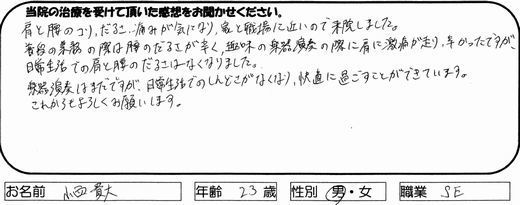 当院の治療を受けて頂いた感想をお聞かせください。
肩と腰のコリ、だるさ、痛みが気になり、家と職場に近いので来院しました。
普段の業務の際は腰のだるさが辛く、趣味の楽器演奏の際に肩に激痛が走り、辛かったですが、
日常生活での肩と腰のだるさはなくなりました。
楽器演奏はまだですが、日常生活でのしんどさがなくなり、快適に過ごすことができています。
これからもよろしくお願いします。
お名前 小西 貴大 年齢 23 歳 性別 男・女 職業 SE